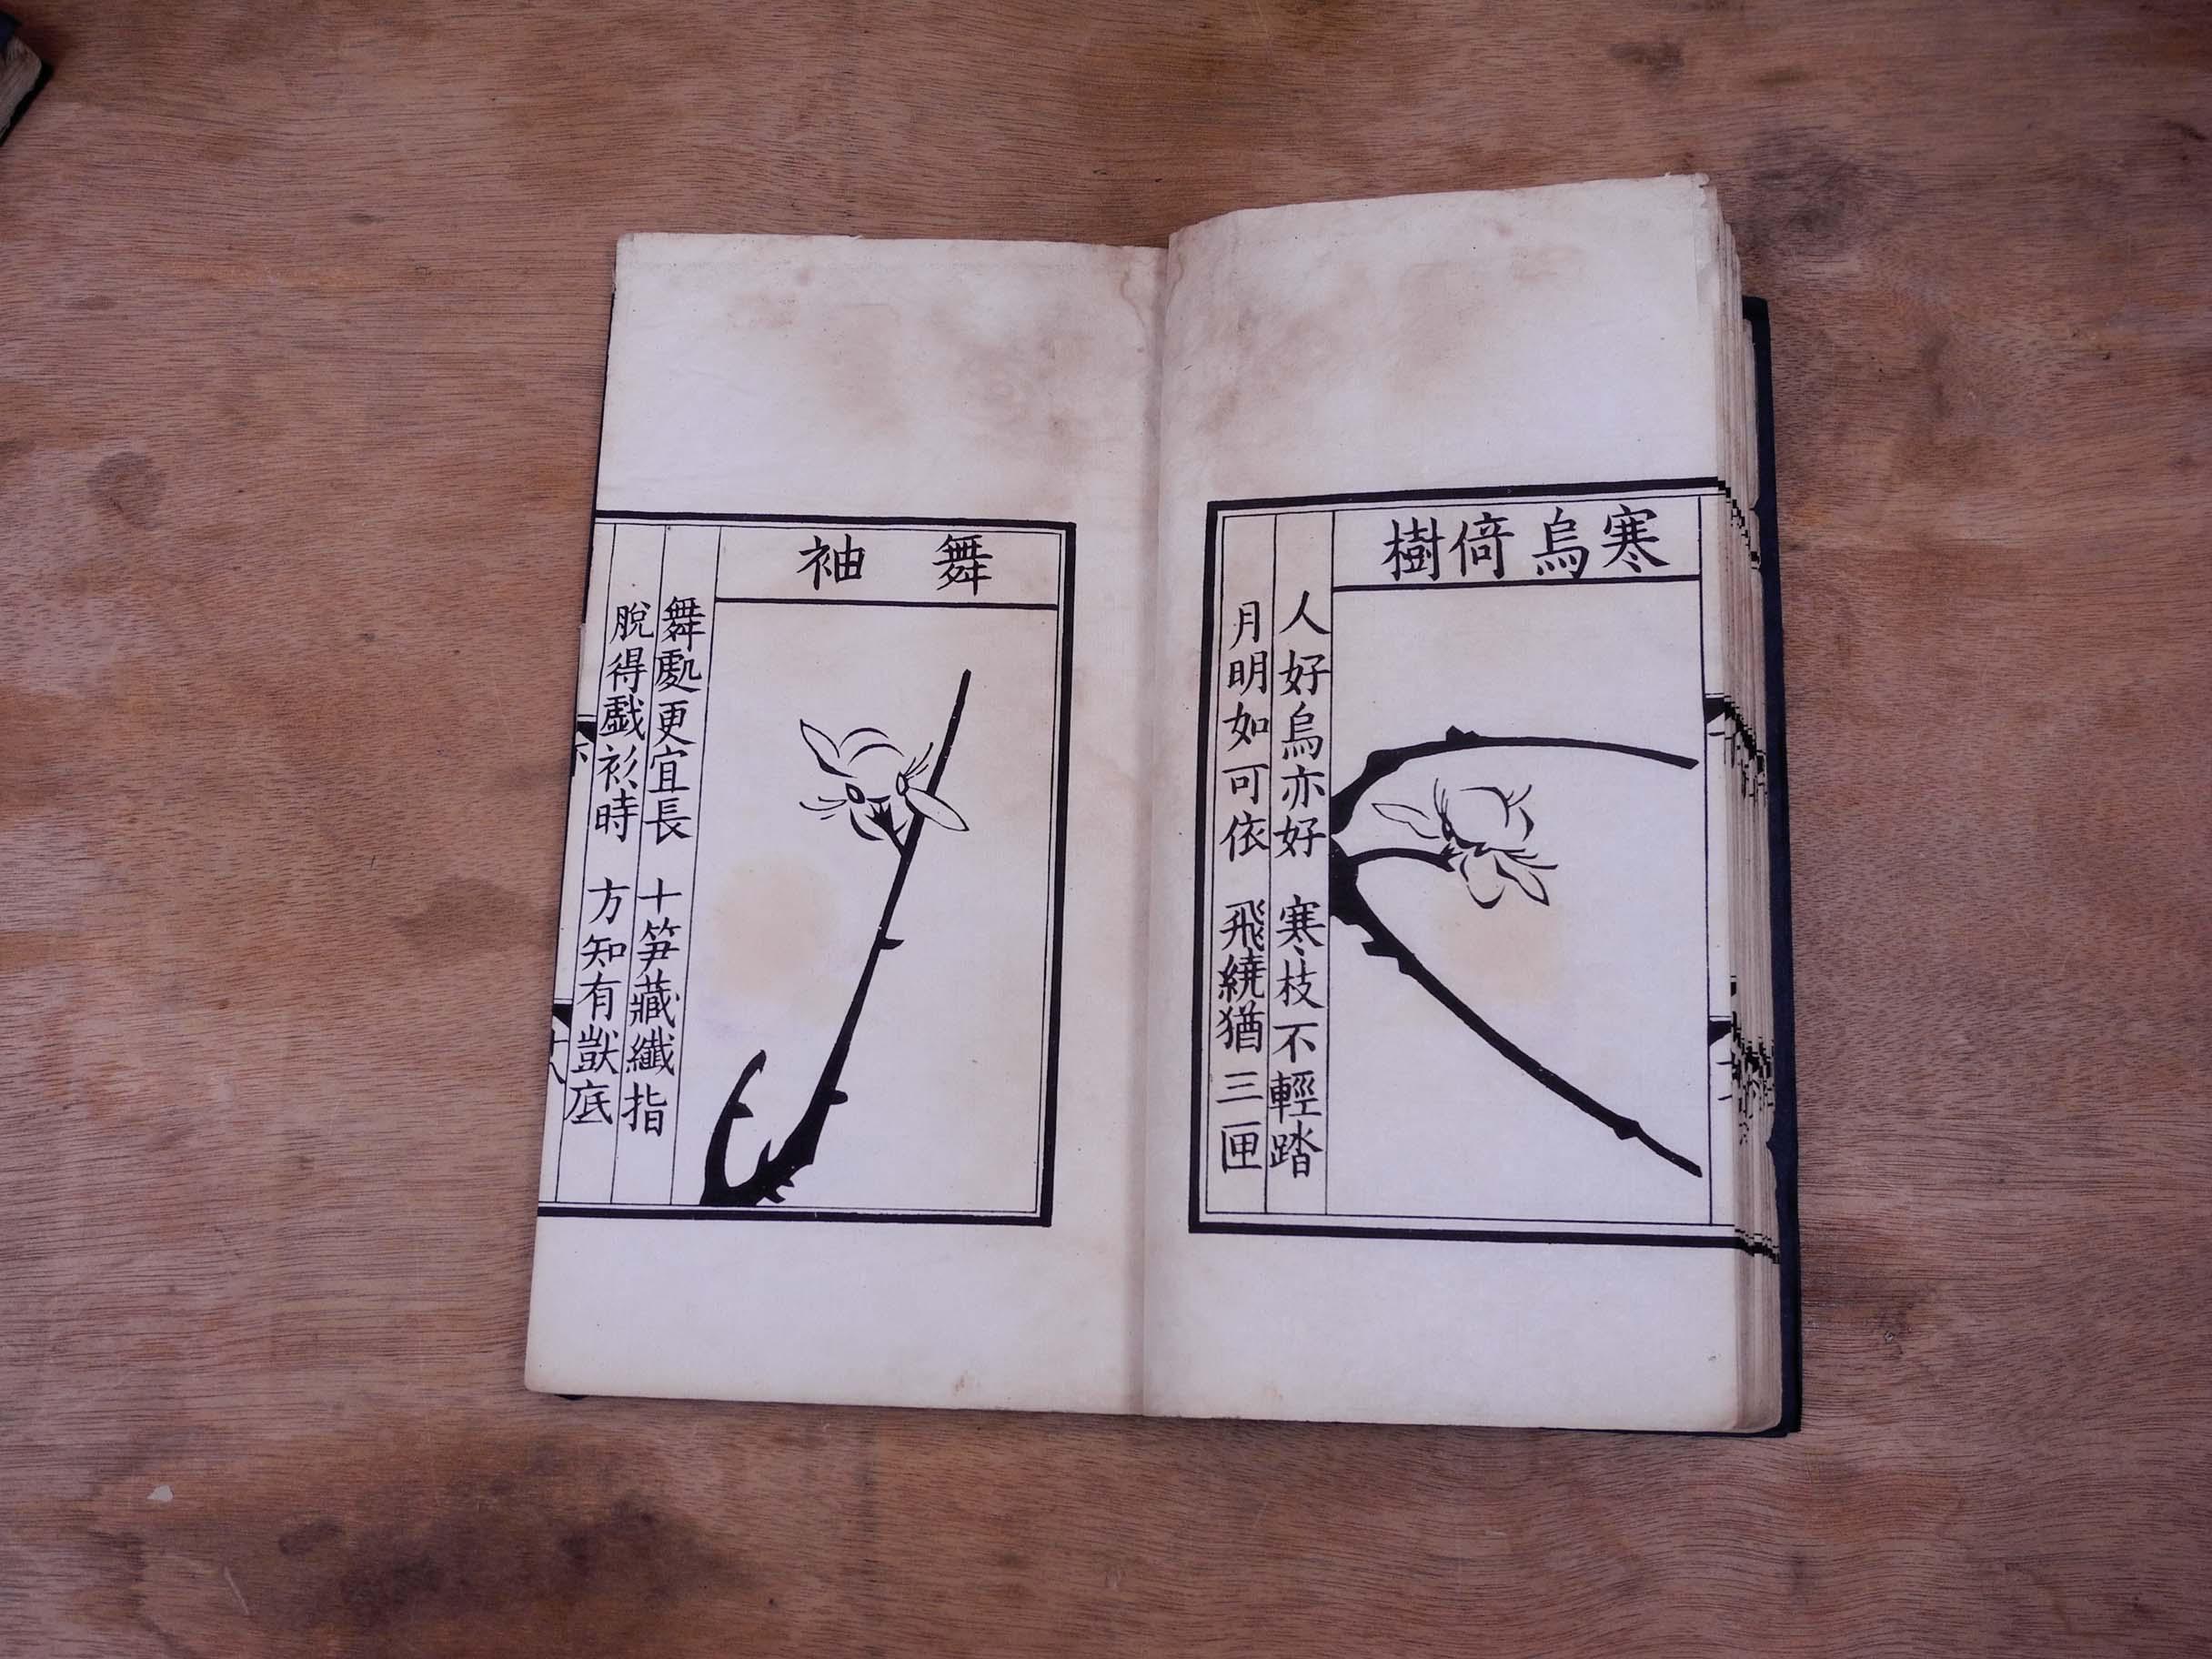 寒烏倚樹
人好烏亦好 寒枝不輕踏
月明如可依 飛繞猶三匝
舞袖
舞處更宜長 十笋藏纖指
脫得戲衫時 方知有獃底